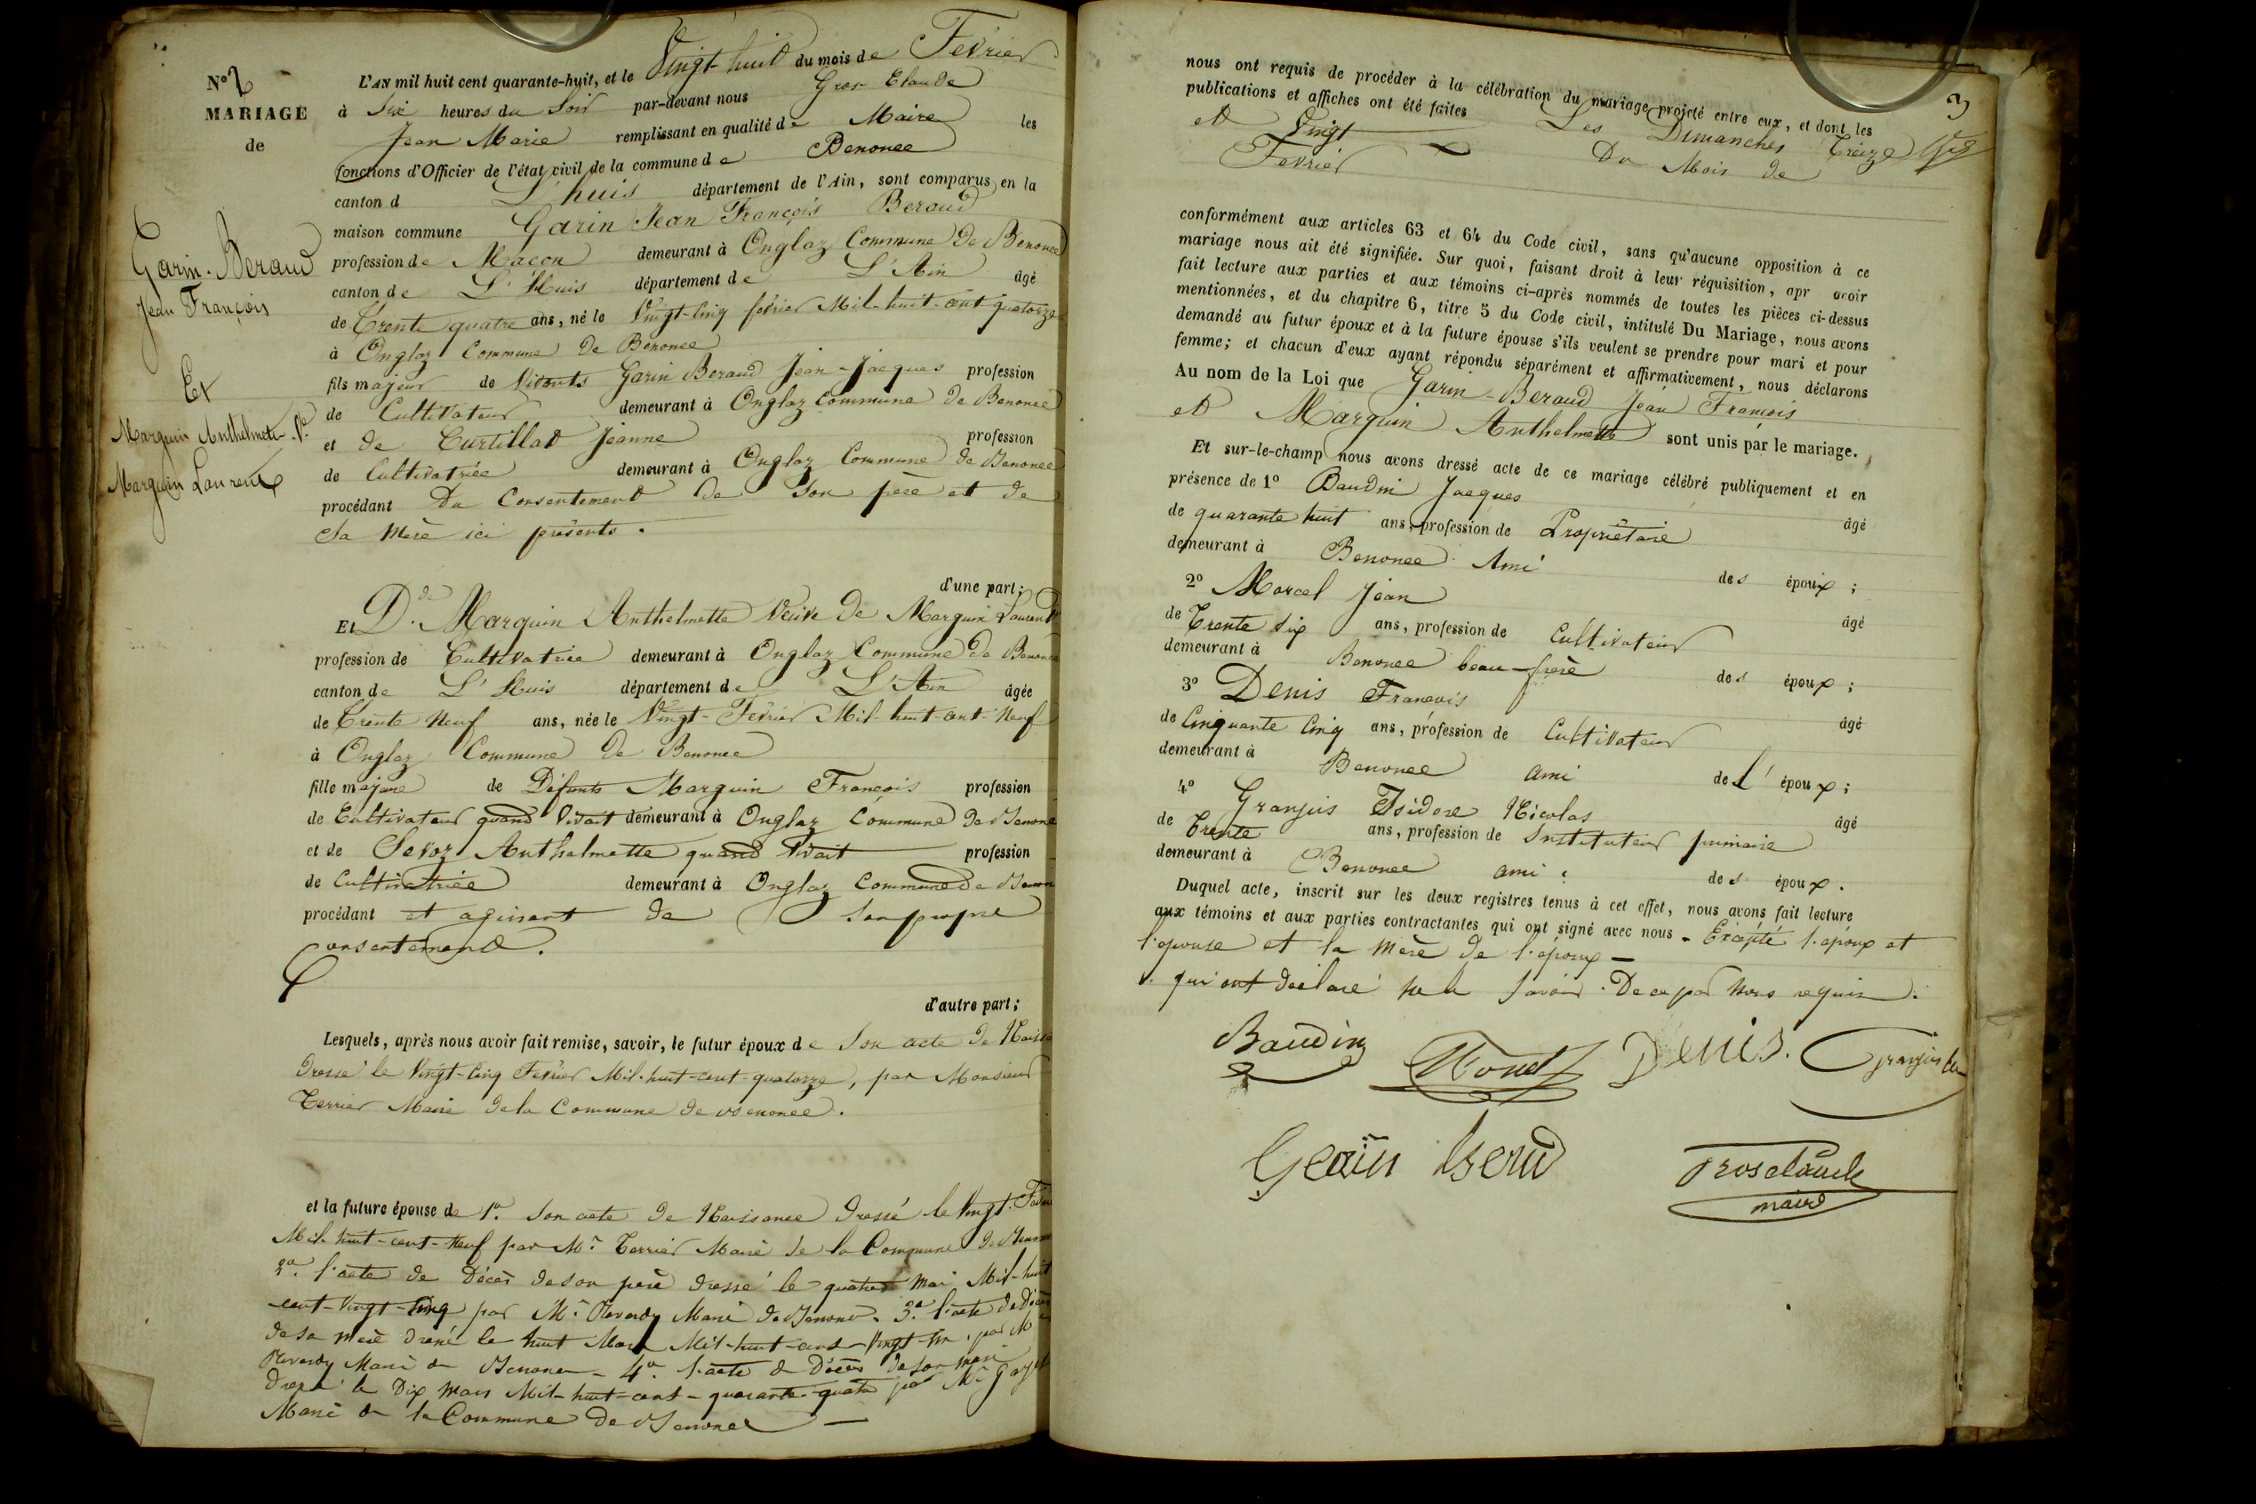 N° 2
MARIAGE
de
Garin-Beraud
Jean François
Et
Marquin Anthelmette Ve.
Marquin Laurent
L'AN mil huit cent quarante-huit, et le Vingt-huit du mois de Fevrier
à Six heures du Soir par-devant nous Gros Claude
Jean Marie remplissant en qualité de Maire les
fonctions d'Officier de l'état civil de la commune de Benonce
canton d L'huis département de l'Ain, sont comparus en la
maison commune Garin Jean François Beraud
profession de Maçon demeurant à Onglaz Commune De Benonce
canton de L'Huis département de L'Ain âgé
de Trente quatre ans, né le Vingt-Cinq fevrier Mil-huit-cent-quatorze
à Onglaz Commune De Benonce
fils majeur de Vivants Garin Beraud Jean-Jacques profession
de Cultivateur demeurant à Onglaz Commune de Benonce
et de Curtillat Jeanne profession
de Cultivatrice demeurant à Onglaz Commune de Benonce
procédant Du Consentement De Son père et de
Sa mère ici présents.
d'une part;
Et D.de Marquin Anthelmette Veuve De Marquin Laurent
profession de Cultivatrice demeurant à Onglaz Commune De Benonce
canton de L'Huis département de L'Ain âgée
de Trente Neuf ans, née le Vingt-Fevrier Mil-huit-cent-Neuf
à Onglaz Commune De Benonce
fille majeure de Défunts Marquin François profession
de Cultivateur quand Vivait demeurant à Onglaz Commune De Benonce
et de Sevoz Anthelmette quand Vivait profession
de Cultivatrice demeurant à Onglaz Commune De Benonce
procédant et agissant de Son propre
Consentement.
d'autre part;
Lesquels, après nous avoir fait remise, savoir, le futur époux de Son acte De Naiss
Dressé le Vingt-Cinq Fevrier Mil-huit-cent-quatorze, par Monsieur
Terrier Maire de la Commune de Benonce.
et la future épouse de 1° Son acte De Naissance Dressé le Vingt-Fevrier
Mil-huit-cent-Neuf par Mr Terrier Maire de la Commune De Benonce
2° l'acte de Décès de son père dressé le quatre Mai Mil-huit
cent-Vingt-Cinq par Mr Reverdy Maire De Benonce. 3° l'acte De Décès
de sa mère dressé le huit Mars Mil-huit-cent-Vingt-un, par M
Reverdy Maire de Benonce - 4° l'acte de Décès de son mari
Dressé le Dix mars Mil-huit-cent-quarante-quatre par Mr
Maire de la Commune De Benonce
3
nous ont requis de procéder à la célébration du mariage projeté entre eux, et dont les
publications et affiches ont été faites Les Dimanches Treize
et Vingt Du Mois de
Fevrier
conformément aux articles 63 et 64 du Code civil, sans qu'aucune opposition à ce
mariage nous ait été signifiée. Sur quoi, faisant droit à leur réquisition, apr avoir
fait lecture aux parties et aux témoins ci-après nommés de toutes les pièces ci-dessus
mentionnées, et du chapitre 6, titre 5 du Code civil, intitulé Du Mariage, nous avons
demandé au futur époux et à la future épouse s'ils veulent se prendre pour mari et pour
femme; et chacun d'eux ayant répondu séparément et affirmativement, nous déclarons
Au nom de la Loi que Garin-Beraud Jean François
et Marquin Anthelmette sont unis par le mariage.
Et sur-le-champ nous avons dressé acte de ce mariage célébré publiquement et en
présence de 1° Baudin Jacques
âgé
de quarante huit ans, profession de Propriétaire
demeurant à Benonce Ami des époux;
2° Morcel Jean
âgé
de Trente Six ans, profession de Cultivateur
demeurant à Benonce beau-frère des époux;
3° Denis François
âgé
de Cinquante Cinq ans, profession de Cultivateur
demeurant à Benonce ami de L'époux;
4° Granjus Isidore Nicolas
âgé
de Trente ans, profession de Instituteur primaire
demeurant à Benonce ami des époux.
Duquel acte, inscrit sur les deux registres tenus à cet effet, nous avons fait lecture
aux témoins et aux parties contractantes qui ont signé avec nous - Excepté l'époux et
l'épouse et la mère de l'époux -
qui ont déclaré ne le savoir. De ce par Nous requis.
Baudin
DENIS.
Granjus
Grosclaude
maire